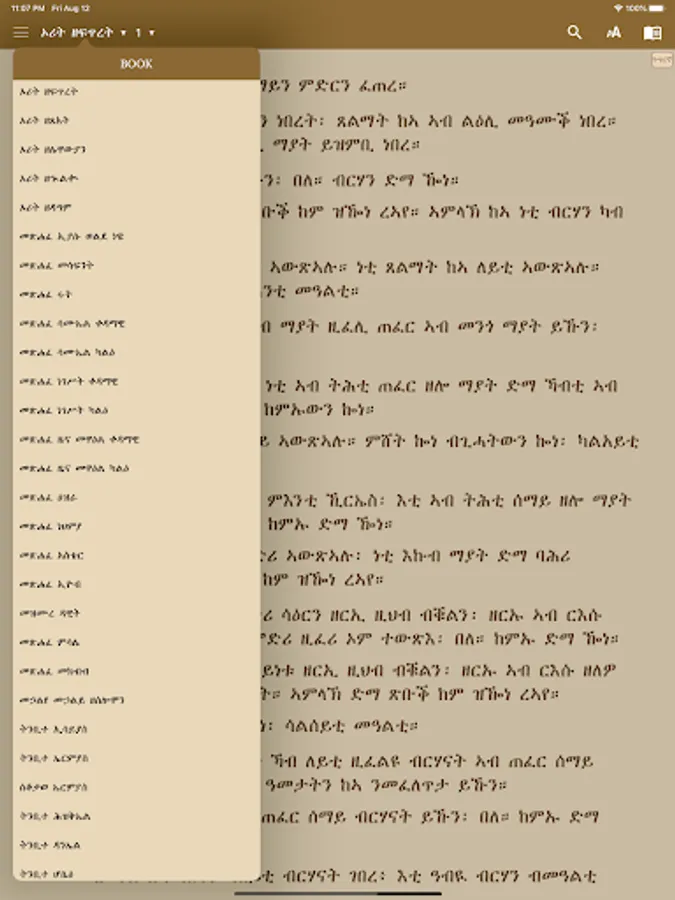 11:07 PM Fri Aug 12 100%
ኦሪት ዘፍጥረት 1
BOOK
ኦሪት ዘፍጥረት
ኦሪት ዘጸአት
ኦሪት ዘሌዋውያን
ኦሪት ዘኁልቍ
ኦሪት ዘዳግም
መጽሐፈ ኢያሱ ወልደ ነዌ
መጽሐፈ መሳፍንት
መጽሐፈ ሩት
መጽሐፈ ሳሙኤል ቀዳማዊ
መጽሐፈ ሳሙኤል ካልዕ
መጽሐፈ ነገሥት ቀዳማዊ
መጽሐፈ ነገሥት ካልዕ
መጽሐፈ ዜና መዋዕል ቀዳማዊ
መጽሐፈ ዜና መዋዕል ካልዕ
መጽሐፈ ዕዝራ
መጽሐፈ ነህምያ
መጽሐፈ አስቴር
መጽሐፈ ኢዮብ
መዝሙረ ዳዊት
መጽሐፈ ምሳሌ
መጽሐፈ መክብብ
መኃልየ መኃልይ ዘሰሎሞን
ትንቢተ ኢሳይያስ
ትንቢተ ኤርምያስ
ሰቆቃወ ኤርምያስ
ትንቢተ ሕዝቅኤል
ትንቢተ ዳንኤል
ትንቢተ ሆሴዕ
ምድርን ፈጠረ።
ነበረት፡ ጸልማት ከኣ ኣብ ልዕሊ መዓሙቝ ነበረ።
ማያት ይዝምቢ ነበረ።
በለ። ብርሃን ድማ ዀነ።
ከም ዝዀነ ረኣየ። ኣምላኽ ከኣ ነቲ ብርሃን ካብ
ኣውጽኣሉ። ነቲ ጸልማት ከኣ ለይቲ ኣውጽኣሉ።
መዓልቲ።
ማያት ዚፈሊ ጠፈር ኣብ መንጎ ማያት ይኹን፡
ነቲ ኣብ ትሕቲ ጠፈር ዘሎ ማያት ድማ ኻብቲ ኣብ
ከምኡውን ኰነ።
ኣውጽኣሉ። ምሸት ኰነ ብጊሓትውን ኰነ፡ ካልአይቲ
ምእንቲ ኺርኤስ፡ እቲ ኣብ ትሕቲ ሰማይ ዘሎ ማያት
ከምኡ ድማ ዀነ።
ኣውጽኣሉ፡ ነቲ እኩብ ማያት ድማ ባሕሪ
ከም ዝዀነ ረኣየ።
ሳዕርን ዘርኢ ዚህብ ብቝልን፡ ዘርኡ ኣብ ርእሱ
ዚፈሪ ኦም ተውጽእ፡ በለ። ከምኡ ድማ ዀነ።
ዘርኢ ዚህብ ብቝልን፡ ዘርኡ ኣብ ርእሱ ዘለዎ
ኣምላኽ ድማ ጽቡቕ ከም ዝዀነ ረኣየ።
ሳልሰይቲ መዓልቲ።
ኻብ ለይቲ ዚፈልዩ ብርሃናት ኣብ ጠፈር ሰማይ
ዓመታትን ከኣ ንመፈለጥታ ይኹን።
ጠፈር ሰማይ ብርሃናት ይኹን፡ በለ። ከምኡ ድማ
ብርሃናት ገበረ፡ እቲ ዓብዪ ብርሃን ብመዓልቲ